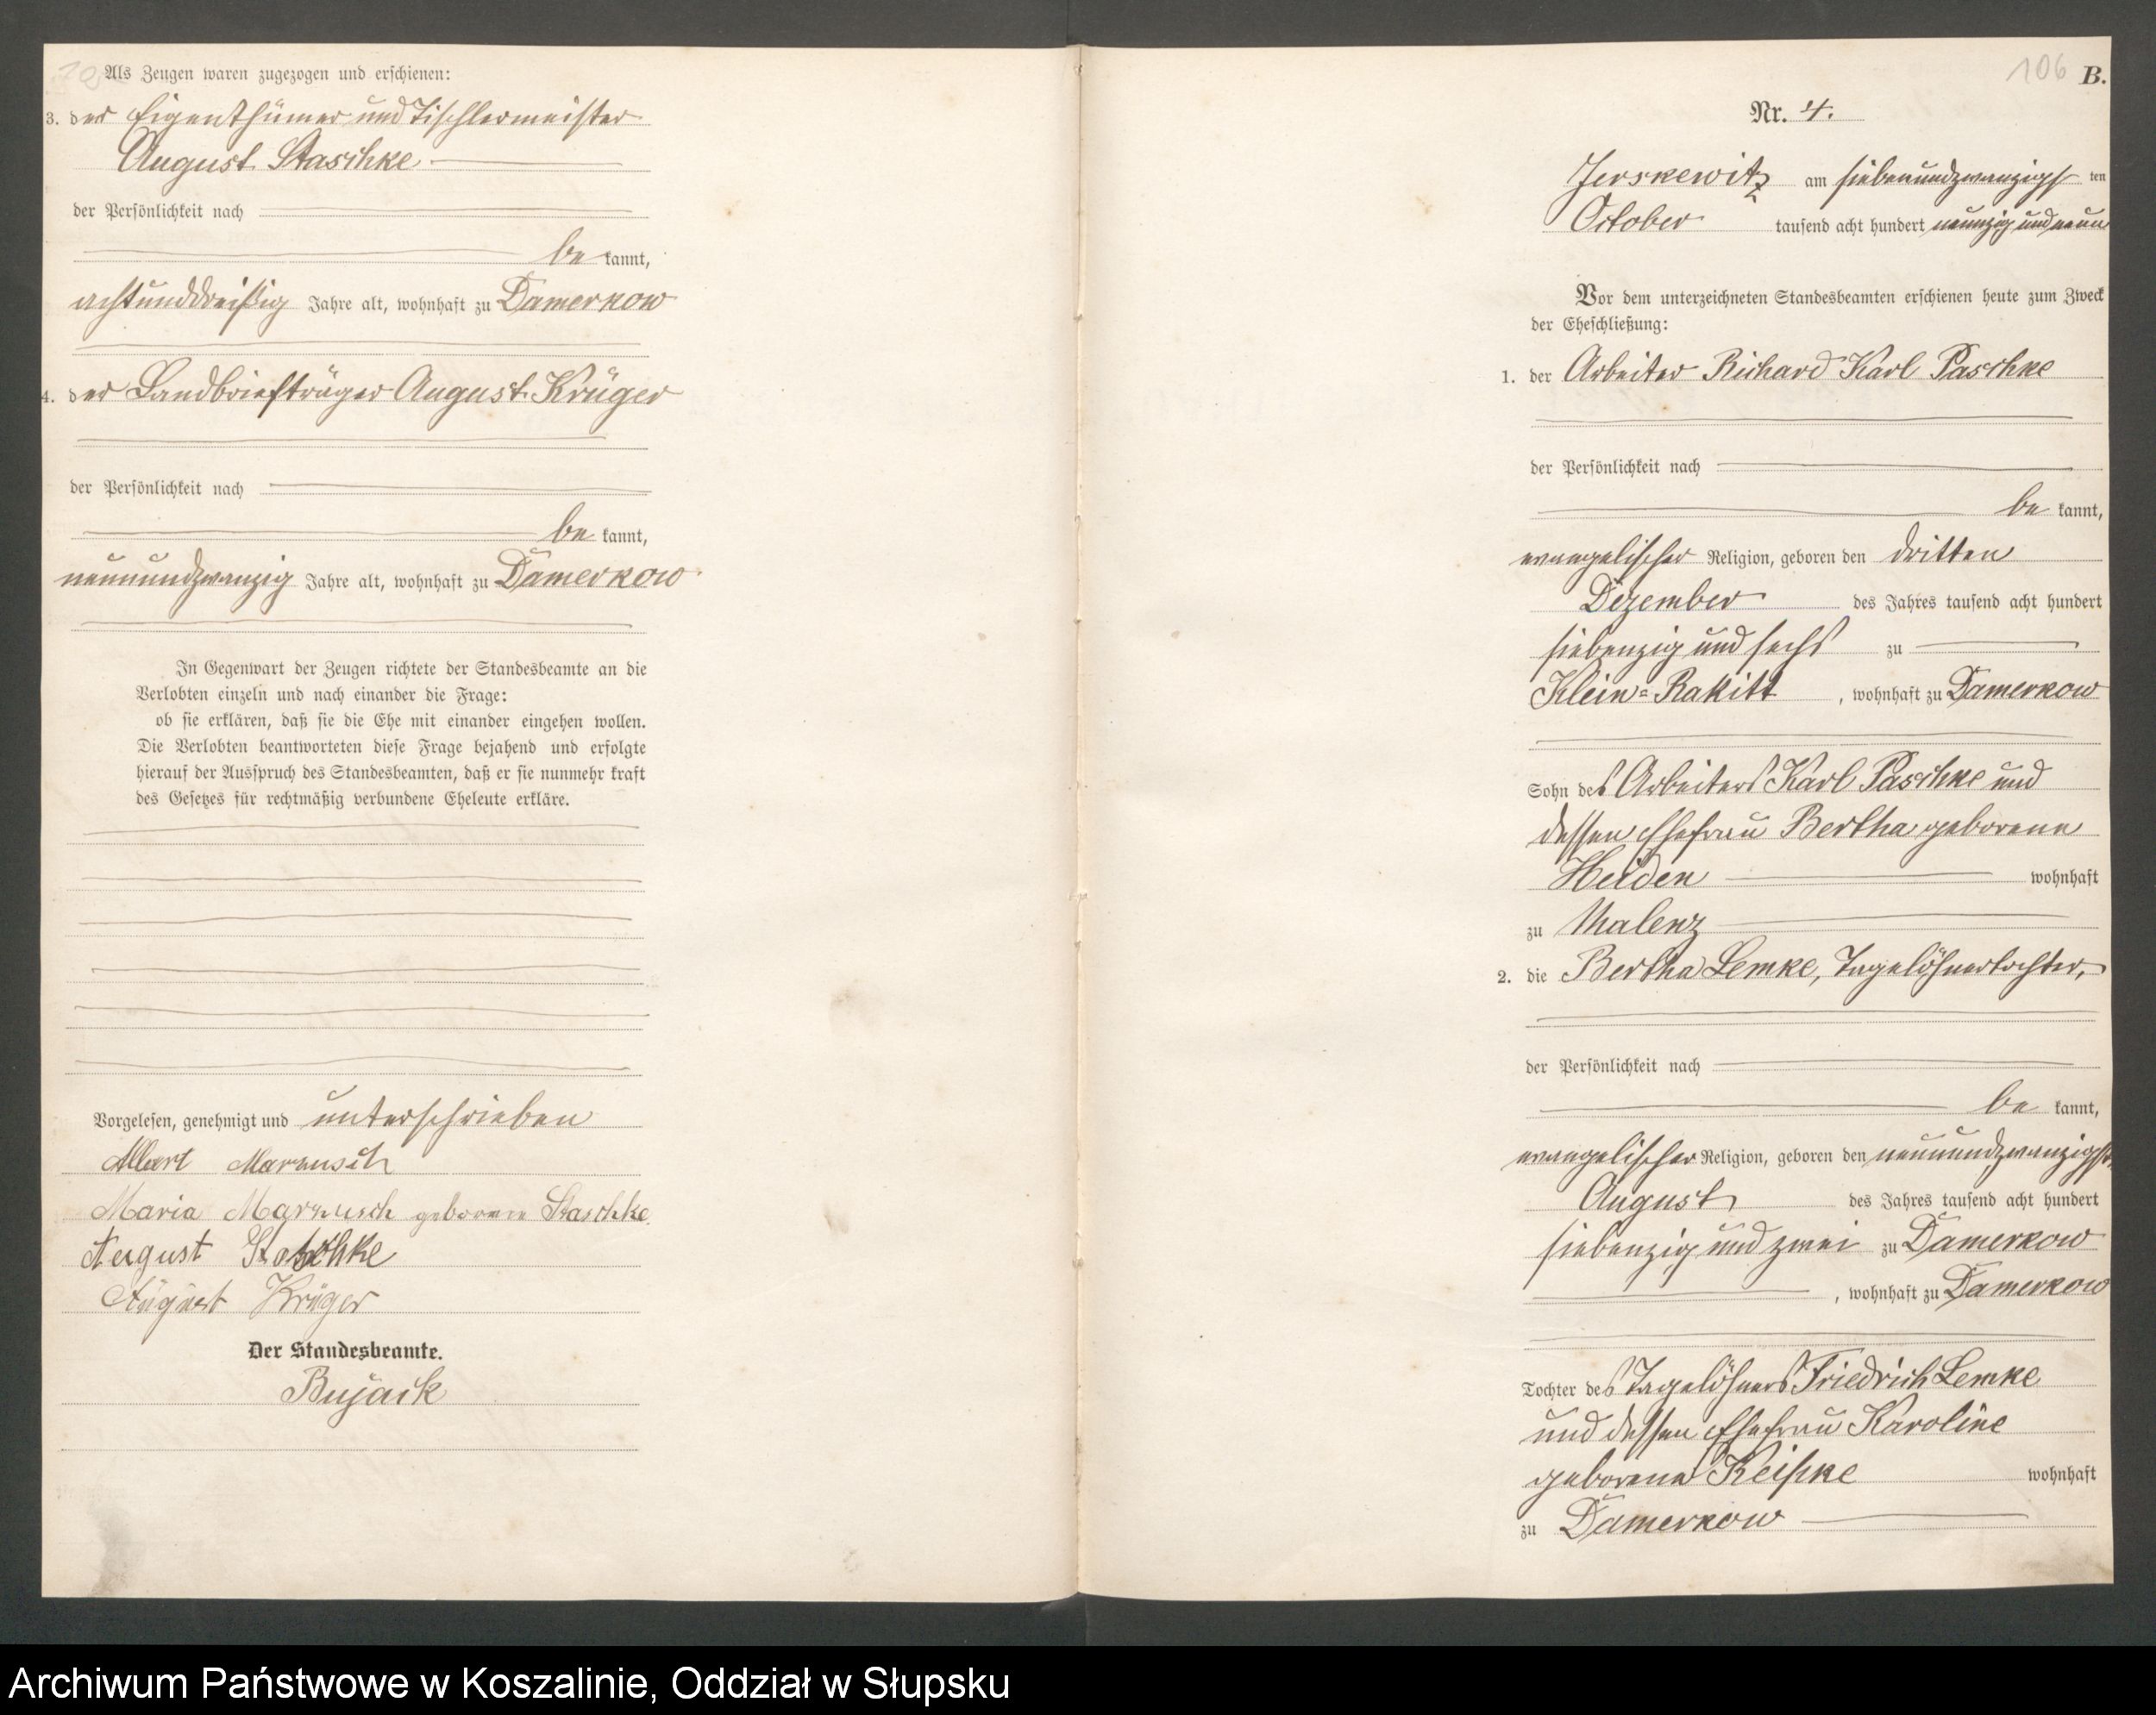 Als Zeugen waren zugezogen und erschienen:
3. der Eigenthümer und Tischlermeister
August Staschke
der Persönlichkeit nach
be kannt,
achtunddreißig Jahre alt, wohnhaft zu Damerkow
4. der Landbriefträger August Krüger
der Persönlichkeit nach
be kannt,
neunundzwanzig Jahre alt, wohnhaft zu Damerkow
In Gegenwart der Zeugen richtete der Standesbeamte an die
Verlobten einzeln und nach einander die Frage:
ob sie erklären, daß sie die Ehe mit einander eingehen wollen.
Die Verlobten beantworteten diese Frage bejahend und erfolgte
hierauf der Ausspruch des Standesbeamten, daß er sie nunmehr kraft
des Gesetzes für rechtmäßig verbundene Eheleute erkläre.
Vorgelesen, genehmigt und unterschrieben
Albert
Maria geborene Staschke
August Staschke
August Krüger
Der Standesbeamte.
Bujack
106 B.
Nr. 4.
Jerskewitz am siebenundzwanzigsten
October tausend acht hundert neunzig und neun
Vor dem unterzeichneten Standesbeamten erschienen heute zum Zweck
der Eheschließung:
1. der Arbeiter Richard Karl Paschke
der Persönlichkeit nach
be kannt,
evangelischer Religion, geboren den dritten
Dezember des Jahres tausend acht hundert
siebenzig und sechs zu
Klein-Rakitt, wohnhaft zu Damerkow
Sohn des Arbeiters Karl Paschke und
dessen Ehefrau Bertha geborene
Heiden wohnhaft
zu Malenz
2. die Bertha Lemke, Tagelöhnertochter,
der Persönlichkeit nach
be kannt,
evangelischer Religion, geboren den neunundzwanzigsten
August des Jahres tausend acht hundert
siebenzig und zwei zu Damerkow
, wohnhaft zu Damerkow
Tochter des Tagelöhners Friedrich Lemke
und dessen Ehefrau Karoline
geborene wohnhaft
zu Damerkow
Archiwum Państwowe w Koszalinie, Oddział w Słupsku